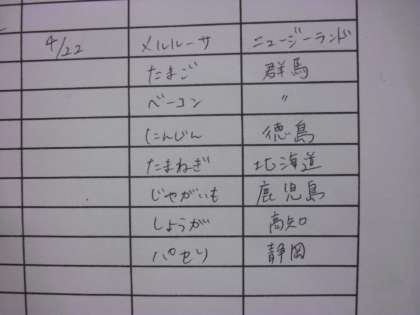 4/22 メルルーサ ニュージーランド
たまご 群馬
ベーコン 〃
にんじん 徳島
たまねぎ 北海道
じゃがいも 鹿児島
しょうが 高知
パセリ 静岡